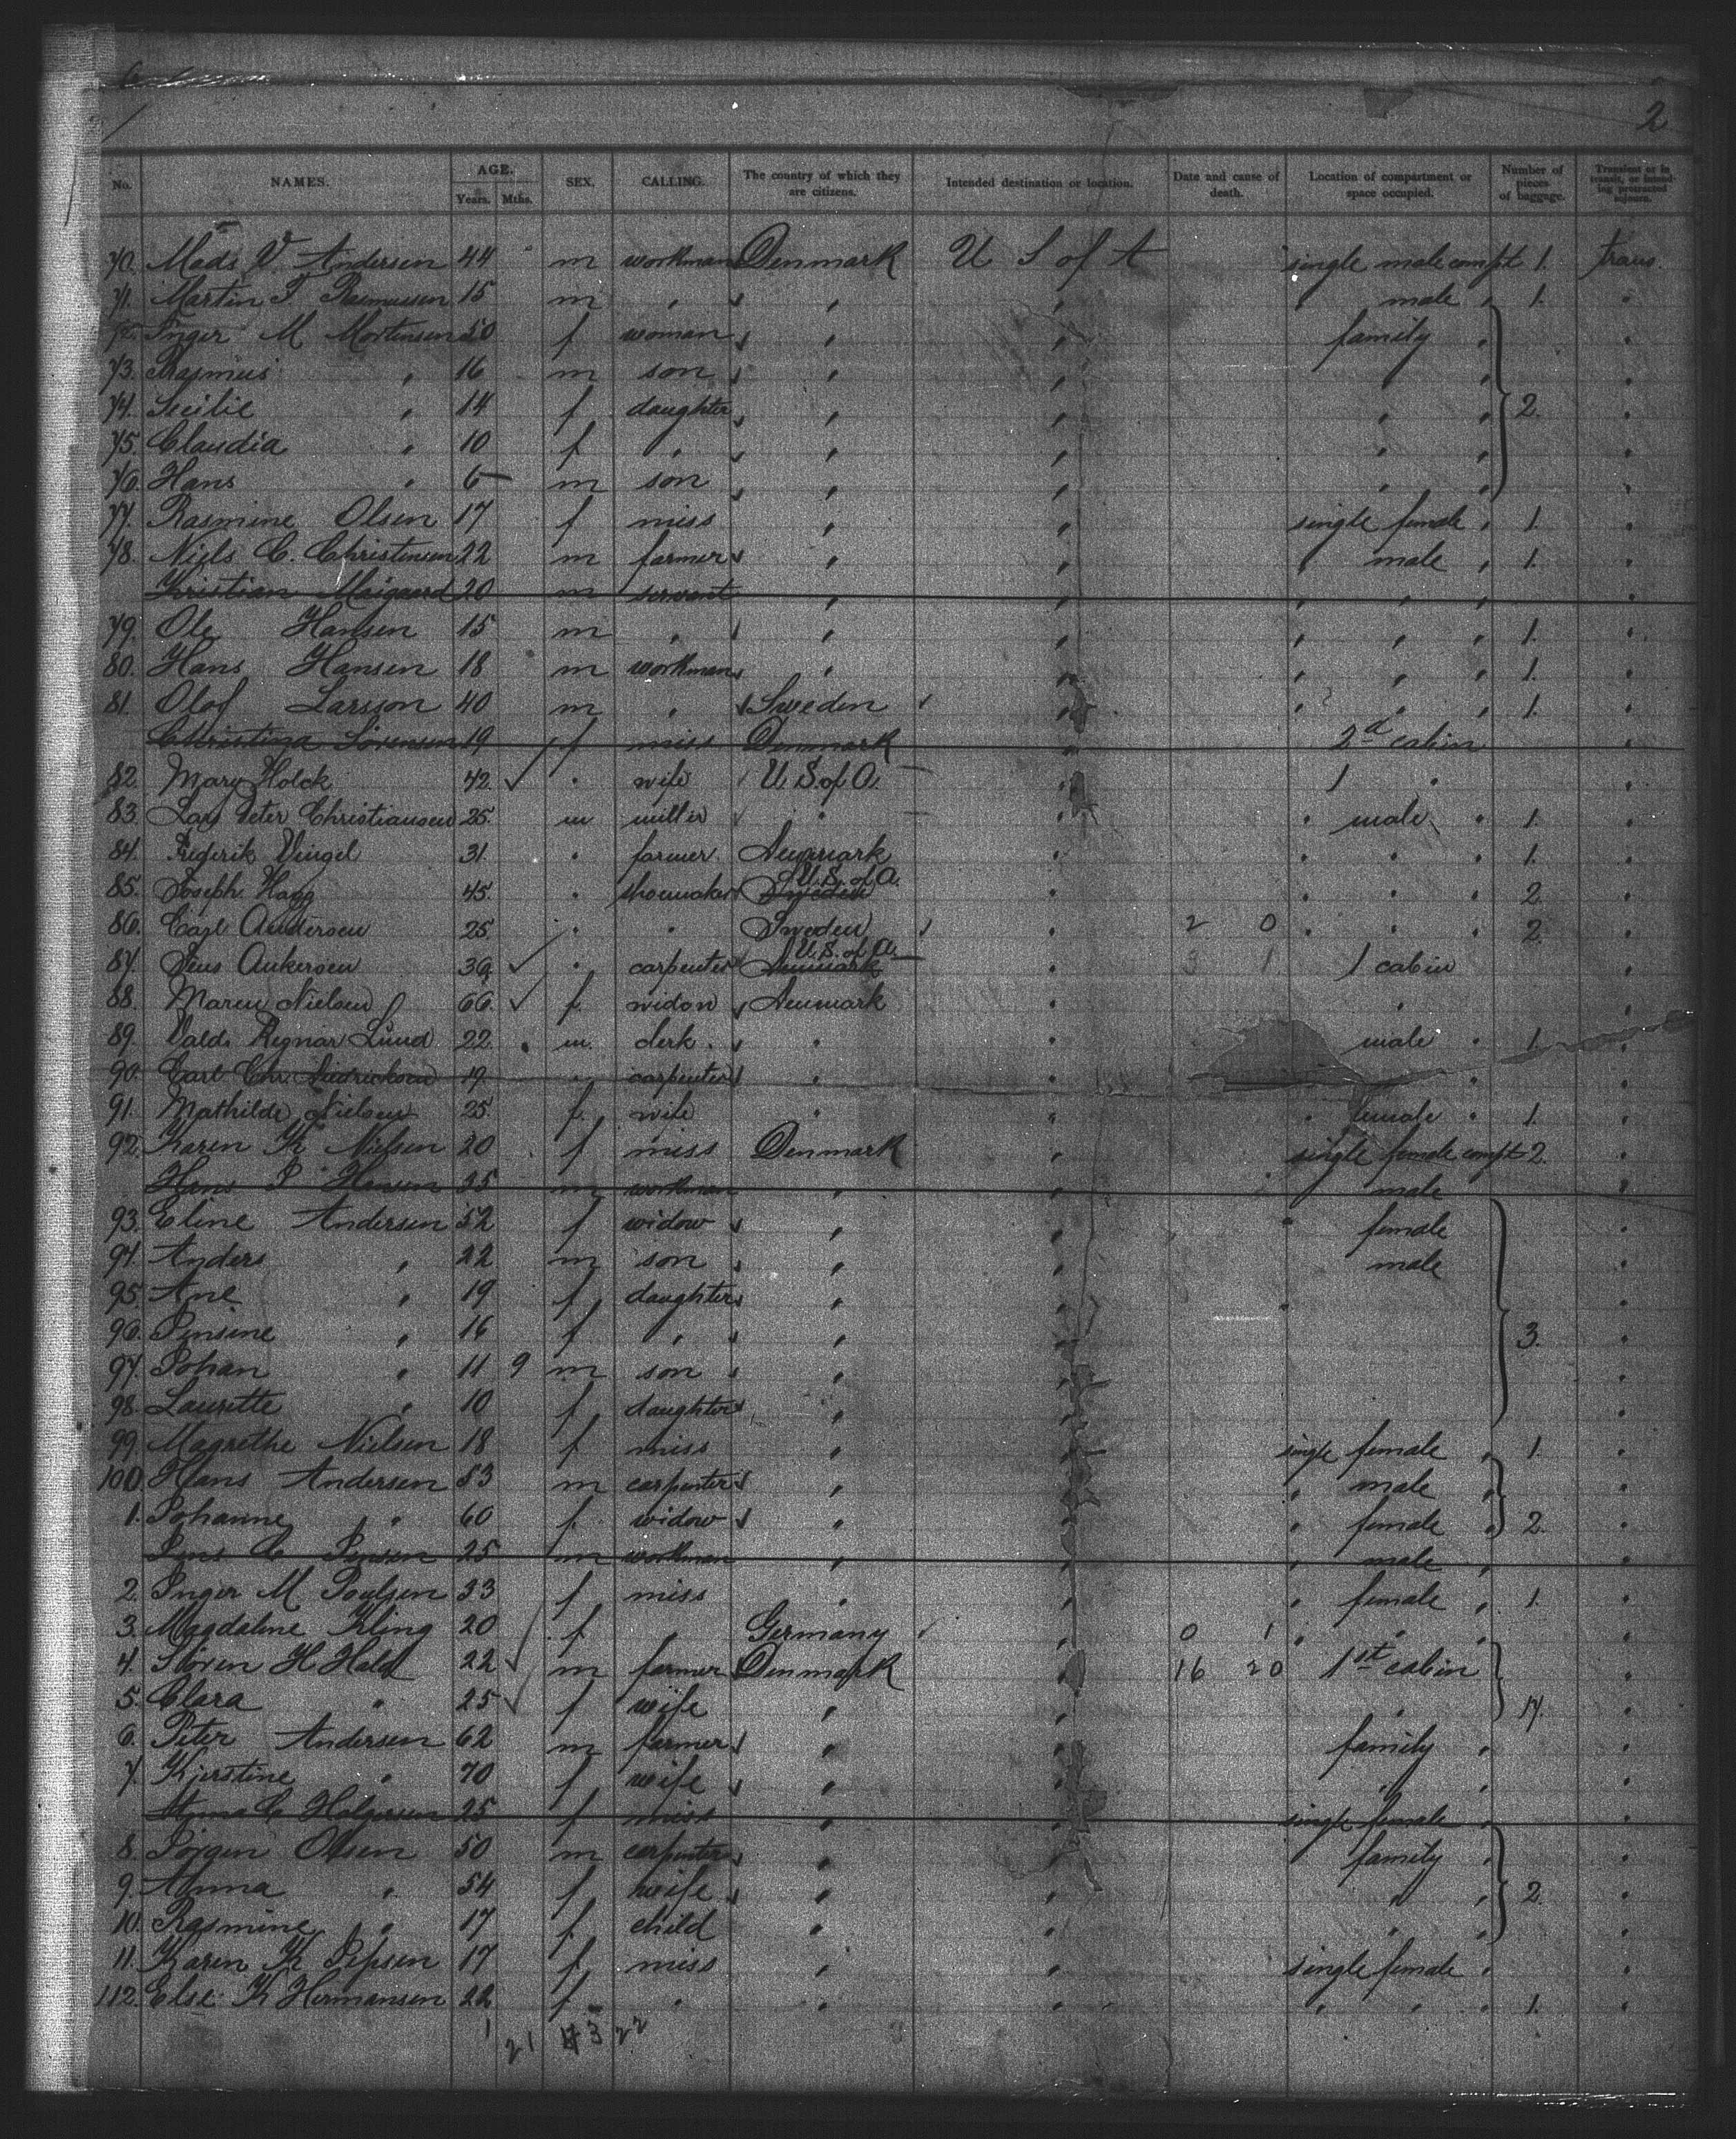 2
No. NAMES. AGE. Years. Mths. SEX. CALLING. The country of which they are citizens. Intended destination or location. Date and cause of death. Location of compartment or space occupied. Number of pieces of baggage. Transient or in transit, or intending protracted sojourn.
70. Mads V. Andersen 44 m workman Denmark U S of A single male compt 1. trans.
71. Martin T Rasmussen 15 m " " " " male " 1. "
72. Inger M Mortensen 50 f woman " " family " "
73. Rasmus " 16 m son " " " " "
74. Secilie " 14 f daughter " " " " 2. "
75. Claudia " 10 f " " " " " "
76. Hans " 6 – m son " " " " "
77. Rasmine Olsen 17 f miss " " single female " 1. "
78. Niels C. Christensen 22 m farmer " " " male " 1. "
Kristian Maigaard 20 m servant " " " " " "
79. Ole Hansen 15 m " " " " " " 1. "
80. Hans Hansen 18 m workman " " " " " 1. "
81. Olof Larsson 40 m " Sweden " " " " 1. "
Christina Sörensen 19 f miss Denmark " 2d cabin "
82. Mary Holck 42. " wife U. S. of A. " 1 " "
83. Lars Peter Christiansen 25. m miller " " " male " 1. "
84. Frederik Vingel 31. " farmer Denmark " " " " 1. "
85. Joseph Hagg 45. " shoemaker Sweden U. S. of A. " " " " 2. "
86. Carl Andersen 25. " " Sweden " 2 0 " " " 2. "
87. Jens Ankersen 39 " carpenter Denmark U. S. of A. " 3 1 1 cabin "
88. Maren Nielsen 66. f. widow Denmark " " "
89. Vald. Regnar Lund 22. m. clerk. " " male " 1. "
90. Carl Chr. Diedricksen 19. " carpenter " " "
91. Mathilde Nielsen 25. f. wife " " " female " 1. "
92. Karen K Nielsen 20 f miss Denmark " single female compt 2. "
Hans P Hansen 35 m workman " " male "
93. Eline Andersen 52 f widow " " " female "
94. Anders " 22 m son " " male "
95. Ane " 19 f daughter " " " "
96. Jensine " 16 f " " " 3. "
97. Johan " 11 9 m son " " "
98. Laurette " 10 f daughter " " "
99. Magrethe Nielsen 18 f miss " " single female " 1. "
100. Hans Andersen 53 m carpenter " " " male " "
1. Johanne " 60 f. widow " " " female " 2. "
Jens C Jensen 25 m workman " " " male " "
2. Inger M Poulsen 33 f miss " " " female " 1. "
3. Magdaline Kling 20 f " Germany " 0 1 " " " "
4. Sören H Hald 22 m farmer Denmark " 16 20 1st cabin "
5. Clara " 25 f wife " " " 17. "
6. Peter Andersen 62 m farmer " " family " "
7. Kjerstine " 70 f wife " " " " "
Anna C Holgersen 25 f miss " " single female " "
8. Jörgen Olsen 50 m carpenter " " family " "
9. Anna " 54 f wife " " " " 2. "
10. Rasmine " 17 f. child " " " " "
11. Karen K Jepsen 17 f miss " " single female " "
112. Else K Hermansen 22 f " " " " " " 1. "
21 3 22